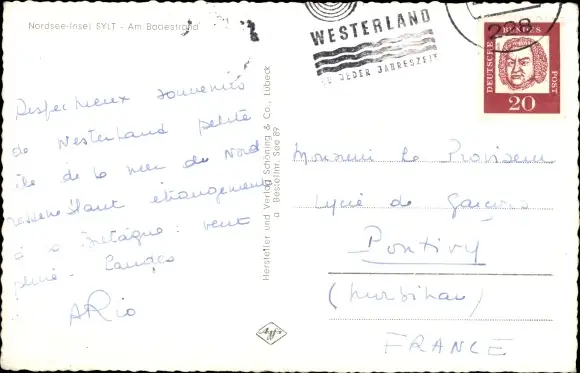 Nordsee-Insel SYLT - Am Badestrand
Respectueux souvenirs
de Westerland petite
île de la mer du Nord
ressemblant étrangement
à la Bretagne : vent
pluie - Landes
ARio
Hersteller und Verlag Schöning & Co., Lübeck
a Bestellnr. See 89
Agfa
WESTERLAND
ZU JEDER JAHRESZEIT
228
DEUTSCHE BUNDESPOST
20
Monsieur le Proviseur
Lycée de Garçons
Pontivy
(Morbihan)
FRANCE